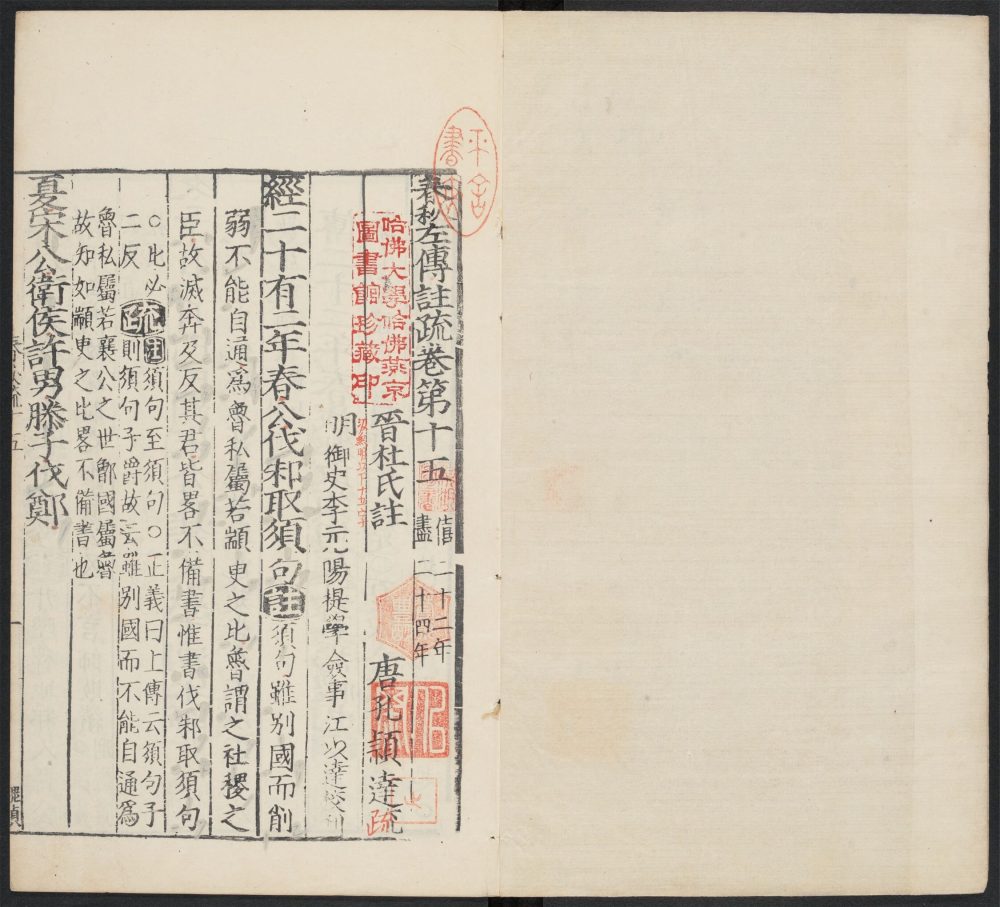 春秋左傳註疏卷第十五
僖二十二年
盡二十四年
晉杜氏註 唐孔穎達疏
明御史李元陽提學僉事江以達校刊
經二十有二年春公伐邾取須句註須句雖別國而削
弱不能自通爲魯私屬若顓臾之比魯謂之社稷之
臣故滅奔及反其君皆畧不備書惟書伐邾取須句
○比必
二反
疏
注須句至須句○正義曰上傳云須句子
則須句子爵故云雖別國而不能自通爲
魯私屬若襄公之世鄫國屬魯
故知如顓臾之比畧不備書也
夏宋公衛侯許男滕子伐鄭
哈佛大學哈佛燕京
圖書館珍藏印